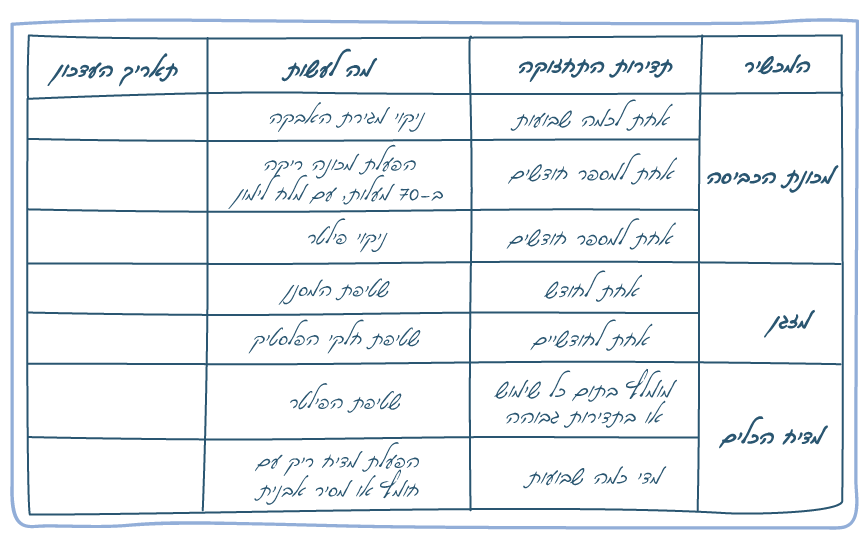 המכשיר
תדירות התחזוקה
מה לעשות
תאריך העדכון
מכונת הכביסה
אחת לכמה שבועות
ניקוי מגירת האבקה
אחת למספר חודשים
הפעלת מכונה ריקה
ב-70 מעלות. עם מלח לימון
אחת למספר חודשים
ניקוי פילטר
מזגן
אחת לחודש
שטיפת המסנן
אחת לחודשיים
שטיפת חלקי הפלסטיק
מדיח הכלים
מומלץ בתום כל שימוש
או בתדירות גבוהה
שטיפת הפילטר
מדי כמה שבועות
הפעלת מדיח ריק עם
חומץ או מסיר אבנית